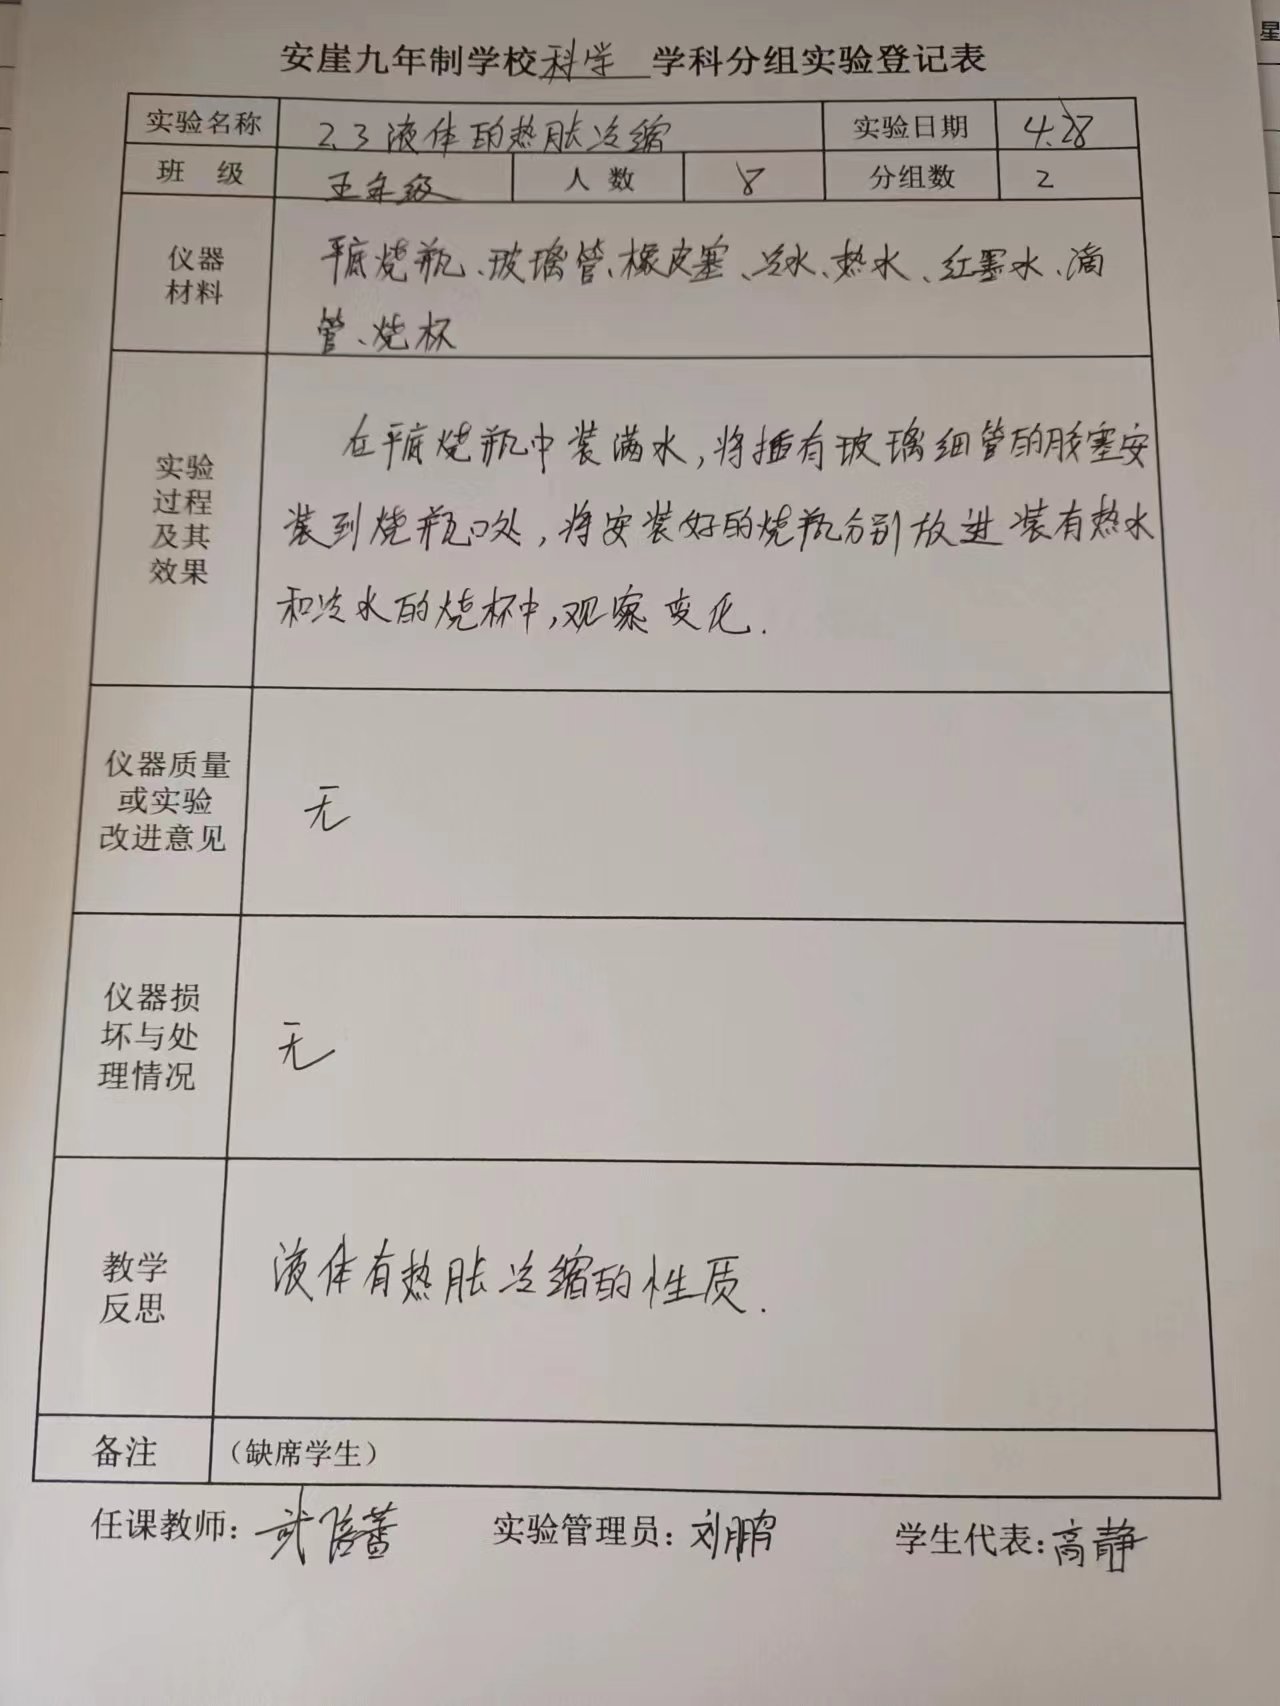 安崖九年制学校科学 学科分组实验登记表
实验名称 2.3液体的热胀冷缩 实验日期 4.28
班 级 五年级 人 数 8 分组数 2
仪器
材料
平底烧瓶、玻璃管、橡皮塞、冷水、热水、红墨水、滴
管、烧杯
实验
过程
及其
效果
在平底烧瓶中装满水,将插有玻璃细管的胶塞安
装到烧瓶口处,将安装好的烧瓶分别放进装有热水
和冷水的烧杯中,观察变化.
仪器质量
或实验
改进意见
无
仪器损
坏与处
理情况
无
教学
反思
液体有热胀冷缩的性质.
备注 (缺席学生)
任课教师: 实验管理员:刘鹏 学生代表:高静
星